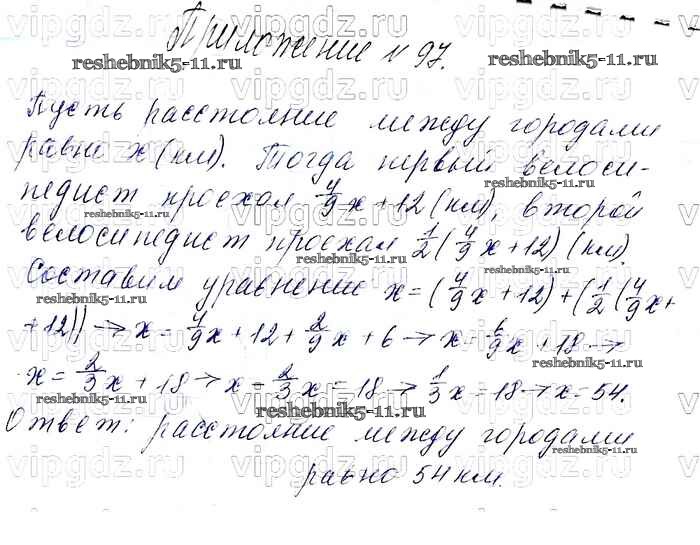 Приложение № 97.
Пусть расстояние между городами
равно x (км). Тогда первый велоси-
педист проехал 4/9x + 12 (км), второй
велосипедист проехал 1/2 (4/9x + 12) (км).
Составим уравнение x = (4/9x + 12) + (1/2 (4/9x +
+ 12)) → x = 4/9x + 12 + 2/9x + 6 → x = 6/9x + 18 →
x = 2/3x + 18 → x - 2/3x = 18 → 1/3x = 18 → x = 54.
Ответ: расстояние между городами
равно 54 км.
vipgdz.ru
reshebnik5-11.ru